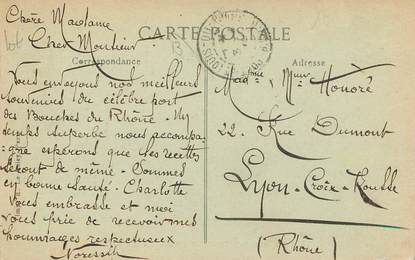 Chère Madame
Cher Monsieur
CARTE POSTALE
Correspondance
Adresse
Vous envoyons nos meilleurs
souvenirs du célèbre port
des Bouches du Rhône. Un
temps superbe nous accompa-
gne espérons que les recettes
seront de même. Sommes
en bonne santé. Charlotte
vous embrasse et moi
vous prie de recevoir mes
hommages respectueux
Mad^me Mr Honoré
22. Rue Dumont
Lyon-Croix-Rousse
(Rhône)